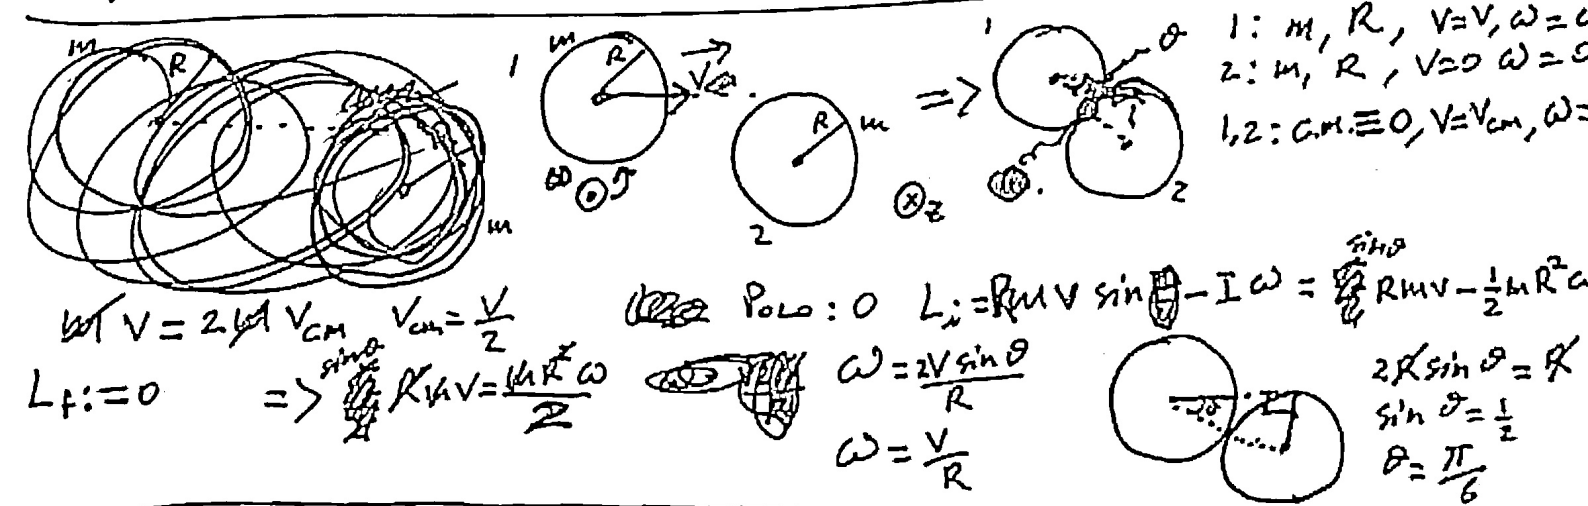 m
R
1
m
R
V
=>
1
θ
1: m, R, V=V, ω=
2: m, R, V=0 ω=0
R
m
1,2: C.M.≡0, V=V_CM, ω=
m
z
2
2
m V = 2m V_CM V_CM = V/2
Polo: 0 L_i = RmV sin - Iω = sinθ RmV - 1/2 mR²ω
L_f: = 0 => sinθ RmV = mR²ω/2
ω = 2V sinθ/R
2R sinθ = R
sinθ = 1/2
ω = V/R
θ = π/6